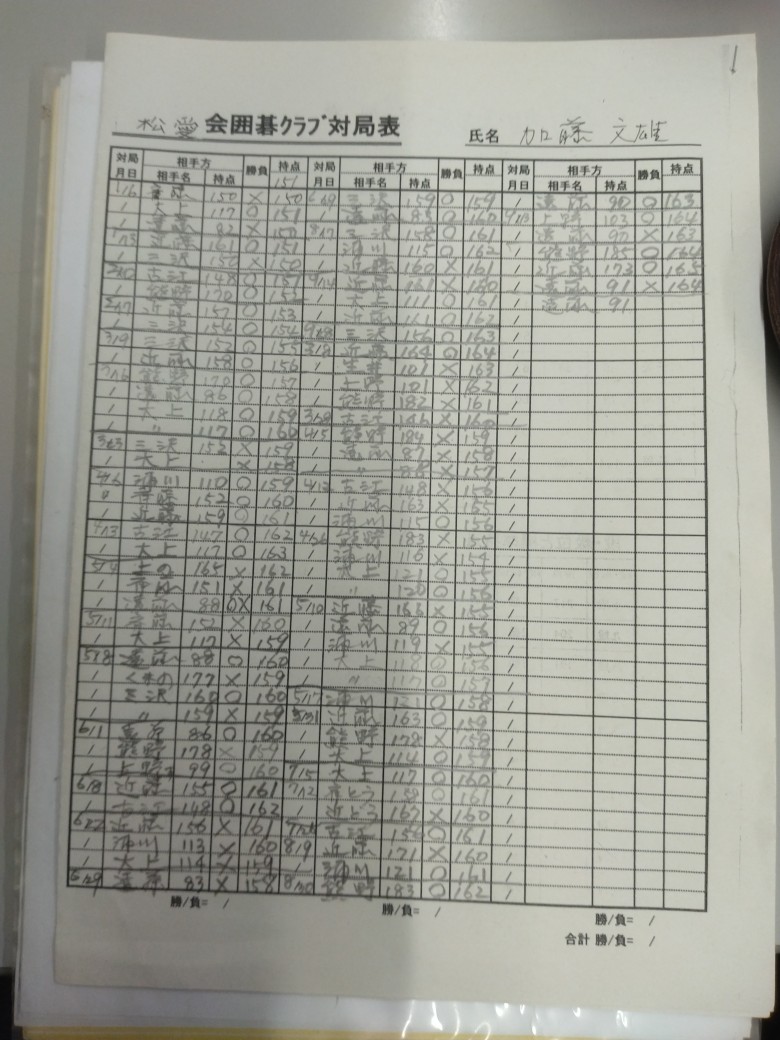 松愛 会囲碁クラブ対局表 氏名 加藤 文雄
対局月日 相手方 勝負 持点 対局月日 相手方 勝負 持点 対局月日 相手方 勝負 持点
相手名 持点 151 相手名 持点 相手名 持点
150 × 150 三沢 159 ○ 159 / 遠藤 90 ○ 163
/ 大上 117 ○ 151 / 遠藤 85 ○ 160 上野 103 ○ 164
/ 遠藤 82 × 150 三沢 158 ○ 161 / 遠藤 90 × 163
近藤 161 ○ 151 / 浦川 115 ○ 162 / 熊野 185 ○ 164
/ 三沢 150 × 150 / 近藤 160 × 161 / 近藤 173 ○ 165
古江 148 ○ 151 近藤 161 × 160 / 遠藤 91 × 164
/ 熊野 170 ○ 152 / 大上 111 ○ 161 / 遠藤 91
近藤 157 ○ 153 / 近藤 161 ○ 162
/ 三沢 154 ○ 154 三沢 156 ○ 163
3/9 三沢 152 ○ 155 近藤 164 ○ 164
/ 近藤 158 ○ 156 / 101 × 163
熊野 170 ○ 157 / 上野 101 × 162
/ 遠藤 86 ○ 158 / 熊野 182 × 161
/ 大上 118 ○ 159 古江 146 × 160
/ 〃 117 ○ 160 4/5 熊野 184 × 159
三沢 152 × 159 / 遠藤 87 × 158
/ 大上 × 158 / 〃 88 × 157
4/6 浦川 110 ○ 159 4/12 古江 148 × 156
斉藤 152 ○ 160 / 近藤 163 × 155
/ 近藤 159 ○ 161 / 浦川 115 ○ 156
4/13 古江 147 ○ 162 4/26 熊野 183 × 155
/ 大上 117 ○ 163 / 浦川 116 × 154
5/4 上の 165 × 162 / 大上 121 ○ 155
/ 151 × 161 / 〃 120 ○ 156
/ 遠藤 88 × 161 5/10 近藤 166 × 155
5/11 斉藤 152 × 160 / 遠藤 89 ○ 156
/ 大上 117 × 159 / 浦川 119 × 155
5/18 遠藤 88 ○ 160 / 大上 118 ○ 156
/ くまの 177 × 159 / 〃 117 ○ 157
/ 三沢 160 ○ 160 5/17 浦川 121 ○ 158
/ 〃 159 × 159 5/31 近藤 163 ○ 159
6/1 遠藤 86 ○ 160 / 熊野 178 × 158
/ 熊野 178 × 159 / 大上 114 ○ 159
/ 上野 99 ○ 160 7/5 大上 117 ○ 160
6/8 近藤 155 ○ 161 7/12 斉とう 158 ○ 161
/ 古江 148 ○ 162 / 近どう 167 × 160
6/22 近藤 156 × 161 古江 156 ○ 161
/ 浦川 113 × 160 8/9 近藤 171 × 160
/ 大上 114 × 159 / 浦川 121 ○ 161
6/29 遠藤 83 × 158 8/30 熊野 183 ○ 162
勝/負= / 勝/負= / 勝/負= /
合計 勝/負= /